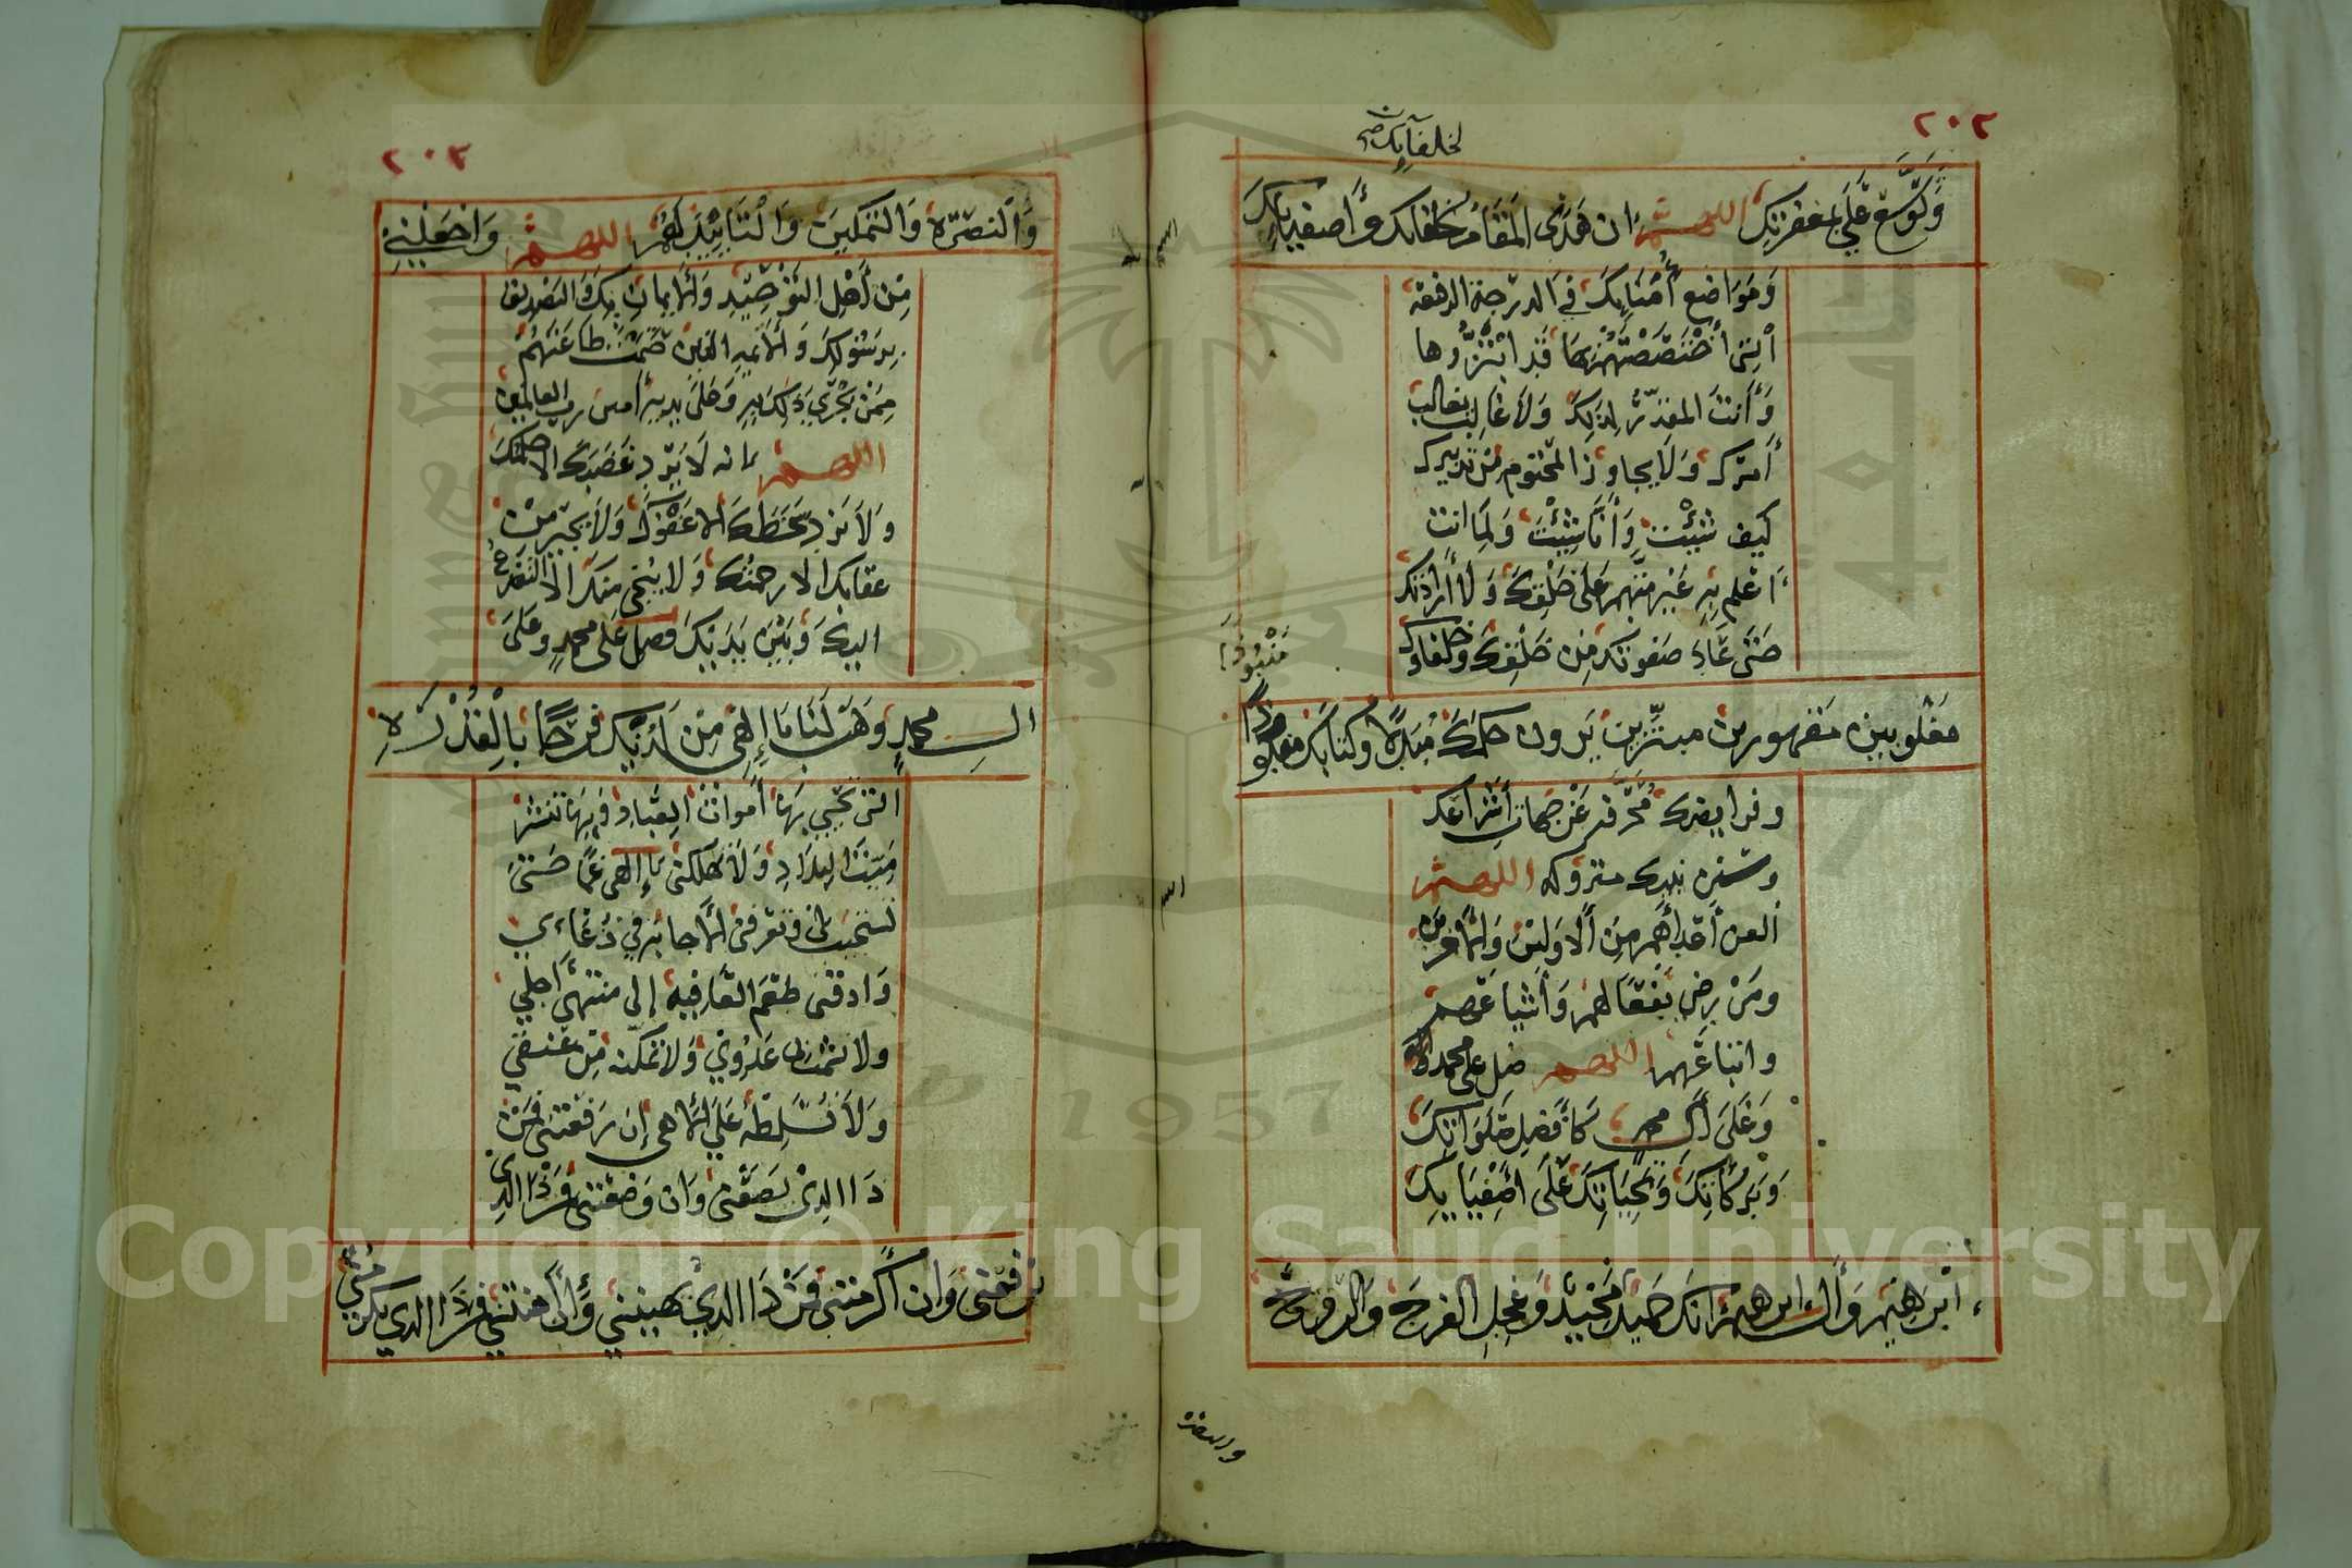 ٢٠٢
لخلفآئك صح
وَتَوَسَّع عَلَيَّ بمغفرتِك اللهم ان هَذَى المَقَام لخلفائك وَأصفيائِك
وَمَوَاضع أُمَنَائِكَ في الدرجة الرفعه
الَتِى أخْتَصَصْتَهُمْ بهَا قَد ابْتَزُّوها
وَأَنتَ المقدّرُ لِذلِكَ وَلَا يُغالب
أَمرَك وَلَا يجاوز المحتوم مِن تدبيرك
كَيف شِئْتَ وَأَنَّا شِئْتَ وَلِمَا انت
اَعلم بِهِ غَيْر متّهم عَلَى خَلْقِكَ وَلَا لِأرَادتك
حَتَّى عَادَ صفوتك مِن خَلْقِكَ وَخلفاوك
مَغْلوبين مَقهورين مبتزّين يَرون حكمَكَ مُبَدَّلًا وكتابَك
مَنْبُوذًا
وفرايضك مُحَرَّفه عَنْ جهات أشراعك
وسنن نبيك متروكه اللهم
العن أعْداهُم مِن الأوَلين وَالأخرين
ومَنْ رضى بفعالهم وَأشياعهم
واتباعهم اللهم صل على محمد
وَعَلَى آل محمد كَأفضل صَلَوَاتِكَ
وَبَرَكَاتِكَ وَتحِيَاتِكَ عَلَى أصْفِيَايِكَ
ابْرَهِيمَ وَآل ابرهيم انكَ حَميدٌ مَجيدٌ وَعجِل الفرجَ وَالروح
والنصرة
٢٠٣
وَالنصرَةَ وَالتمكينَ وَالتَايِيدَ لَهُم اللهم وَاجْعَلْنِي
مِن أَهْلِ التوْحِيدِ وَالايمان بِكَ وَالتصْدِيق
بِرسُولِكَ وَالأئمةِ الذين حَتَمْتَ طاعَتهُم
مِمَنْ يجْري ذلِكَ بِهِ وَعَلى يديهِ أمين رب العالمين
اللهم انه لَا يَرد غَضَبَك الا حلمك
وَلَا يَرد سَخَطَكَ الا عَفْوَك وَلَا يجير من
عقابك الا رحمتُك وَلا يُنْجى منك الا التضرع
اليك وَبَيْنَ يَدَيْكَ فصل عَلى محمدٍ وعَلَى
ال محمدٍ وَهَب لَنَا يَا إلهى مِن لَدُنْكَ فَرَجًا بِالْقُدْرَةِ
التى تُحْيى بِهَا أموات العِبَادِ وَبِهَا تنشر
مَيْتَ البلادِ وَلَا تُهْلكنى يَا إلهى غمًا حَتى
تستجيب لى وتعرفنى الأجابه في دُعَاءي
وَاذقنى طعْمَ العَافِيه إلى منتهى أجلي
ولا تشمت بى عَدُوّي وَلا تمكنه مِن عُنقي
وَلَا تُسَلِطه عَلَيَّ الاهى إن رَفَعْتنى فَمَنْ
ذَا الذى يَضَعُنى وَان وَضَعْتنى فَمَن ذَا الذى
يَرفعنى وَان أكرمتنى فَمَنْ ذَا الذي يهينني وَان أهنتني فمن ذَا الذى يكرمنى